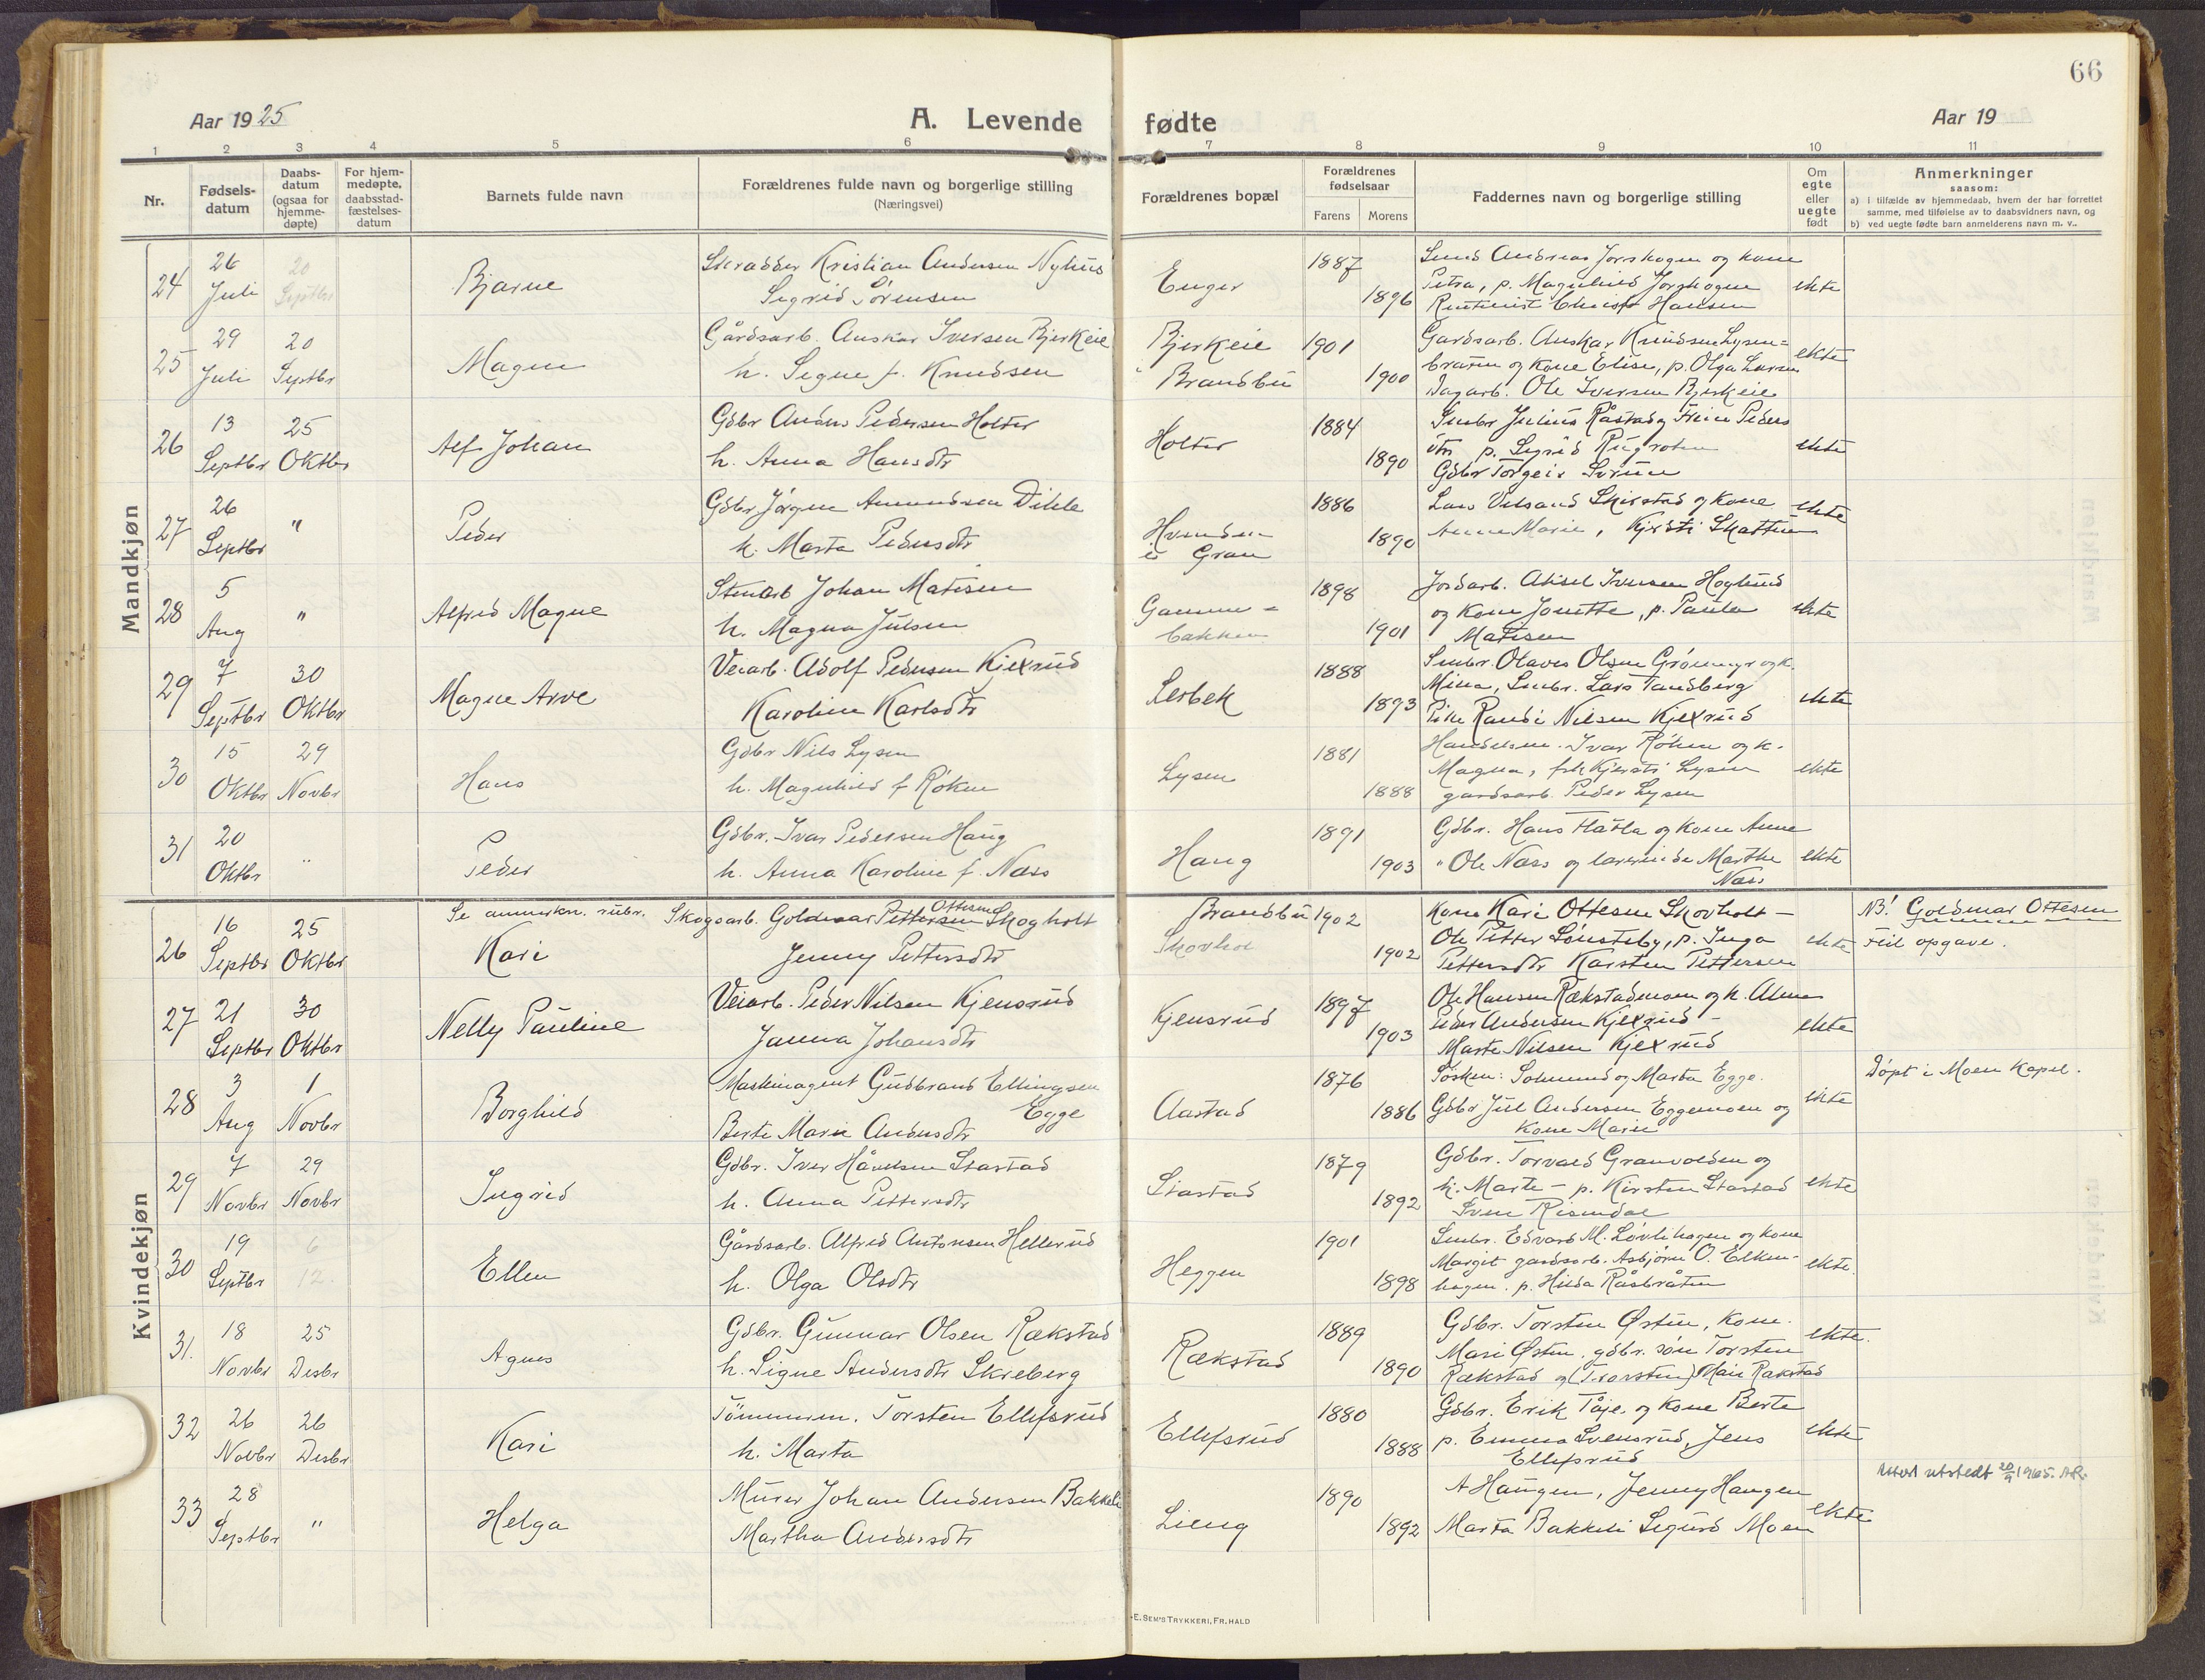 66
Aar 1925
A. Levende fødte
Aar 19
1 2 3 4 5 6 7 8 9 10 11
Nr.
Fødsels-
datum
Daabs-
datum
(ogsaa for
hjemme-
døpte)
For hjem-
medøpte,
daabsstad-
fæstelses-
datum
Barnets fulde navn
Forældrenes fulde navn og borgerlige stilling
(Næringsvei)
Forældrenes bopæl
Forældrenes
fødselsaar
Farens Morens
Faddernes navn og borgerlige stilling
Om
egte
eller
uegte
født
Anmerkninger
saasom:
a) I tilfælde av hjemmedaab, hvem der har forrettet
samme, med tilføielse av to daabsvidners navn, og
b) ved uegte fødte barn anmelderens navn m. v..
Mandkjøn
24
26
Juli
20
Septbr
Bjarne
Skradder Kristian Andersen Nyhus
Sigrid Sørensen
Enger
1887
1896
Andreas Jorshagen og kone
Petra, p. Magnhild Jorshagen
Hansen
ekte
25
29
Juli
20
Septbr
Magne
Gårdsarb. Anskar Iversen Bjerkeie
h. Signe f. Knudsen
Bjerkeie
Brandbu
1901
1900
Gardsarb. Anskar Knudsen Lysen=
braten og kone Elise, p. Olga Larsen
Dagarb. Ole Iversen Bjerkeie
ekte
26
13
Septbr
25
Oktbr
Alf Johan
Gdbr Anders Pedersen Holter
h. Anna Hansdtr
Holter
1884
1890
Smbr Julius Råstad og Peders
dtr, p. Sigrid
Gdbr Torgeir
ekte
27
26
Septbr
"
Peder
Gdbr Jørgen Amundsen Dihle
h. Marta Pedersdtr
Hvinden
i Gran
1886
1890
Lars Velsand Skirstad og kone
Anne Marie, Kjersti Skattum
ekte
28
5
Aug
"
Alfred Magne
Stenarb Johan Matisen
h. Magna Julsen
Gamme=
bakken
1898
1901
Jordarb. Aksel Iversen Hoglund
og kone Jonette, p. Paula
Matisen
ekte
29
7
Septbr
30
Oktbr
Magne Arve
Veiarb. Adolf Pedersen Kjexrud
Karoline Karlsdtr
Lerbek
1888
1893
Smbr. Olaves Olsen Grønmyr og k.
Mina, Smbr. Lars Tandberg
Pike Randi Nilsen Kjexrud
ekte
30
15
Oktbr
29
Novbr
Hans
Gdbr Nils Lysen
h. Magnhild f Røken
Lysen
1881
1888
Handelsm. Ivar Røken og k.
Magna, frk Kjersti Lysen
gardsarb. Peder Lysen
ekte
31
20
Oktbr
"
Peder
Gdbr. Ivar Pedersen Haug
h. Anna Karoline f. Næss
Haug
1891
1903
Gdbr. Hans Flåtla og kone Anne
" Ole Næss og lærerinde Marthe
Næss
ekte
Kvindekjøn
26
16
Septbr
25
Oktbr
Se anmerkn. rubr.
Kari
Ottesen
Skogsarb. Goldmar Pettersen Skogholt
Jenny Pettersdtr
Brandbu
Skovholt
1902
1902
Kone Kari Ottesen Skovholt –
Ole Petter Sønsteby, p. Inga
Pettersdtr Karsten Pettersen
ekte
NB! Goldmar Ottesen
Feil opgave.
27
21
Septbr
30
Oktbr
Nelly Pauline
Veiarb. Peder Nilsen Kjensrud
Janna Johansdtr
Kjensrud
1897
1903
Ole Hansen Rækstadmoen og k. Alma
Peder Andersen Kjexrud –
Marte Nilsen Kjexrud
ekte
28
3
Aug
1
Novbr
Borghild
Maskinagent Gudbrand Ellingsen
Egge
Berte Marie Andersdtr
Aastad
1876
1886
Søsken: Solmund og Marta Egge.
Gdbr Juel Andersen Eggemoen og
Kone Marie
ekte
Døpt i Moen Kapel.
29
7
Novbr
29
Novbr
Ingrid
Gdbr. Iver Håvelsen Stastad
h. Anna Pettersdtr
Stastad
1879
1892
Gdbr. Torvald Granvolden og
k. Marte – p. Kirsten Stastad
Sven Risendal
ekte
30
19
Septbr
6
12.
Ellen
Gårdsarb. Alfred Antonsen Hellerud
h. Olga Olsdtr
Heggen
1901
1898
Smbr. Edvard M. Løvlihagen og kone
Margit gardsarb. Asbjørn O. Elken-
hagen. p. Hilda Råsbråten
ekte.
31.
18
Novbr
25
Desbr
Agnes
Gdbr. Gunnar Olsen Rækstad
h. Signe Andersdtr Skreberg
Rækstad
1889
1890
Gdbr. Torsten Østen, kone.
Mari Østen, gdbr. søn Torsten
Rækstad og (Trorsten) Mari Rækstad
ekte.
32
26
Novbr
26
Desbr
Kari
Tømmerm. Torsten Ellefsrud
h. Marta
Ellefsrud
1880
1888
Gdbr. Erik Tåje og kone Berte
p. Emma Svensrud, Jens
Ellefsrud
ekte
33
28
Septbr
"
Helga
Murer Johan Andersen Bakkeli
Martha Andersdtr
Lieng
1890
1892
A Haugen, Jenny Haugen
Marta Bakkeli Sigurd Moen
ekte
Attest utstedt 20/9 1965. AR.
E. SEM'S TRYKKERI, FR. HALD